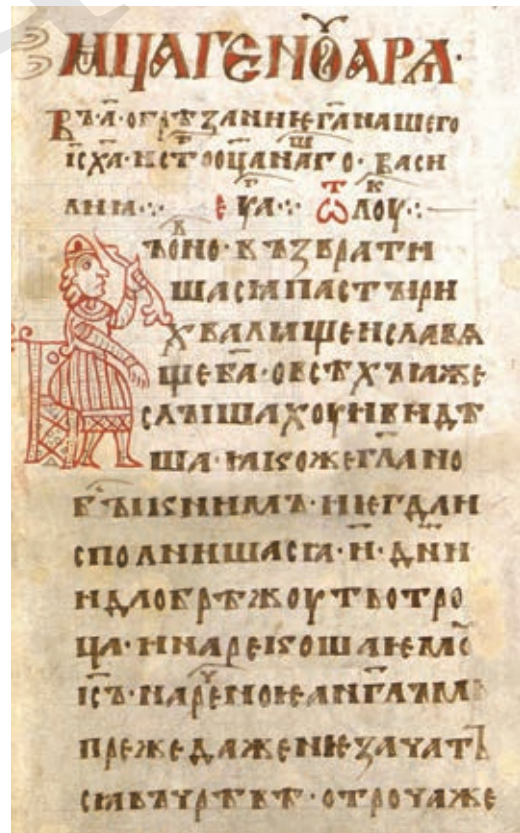 МЦ҃А ГЕНѸАРѦ·
ВЪ·А҃·ОБРѢЗАНИѤ ГА҃ НАШЕГО
ІС ХА҃·И СТ҃ОО ОЦ҃А НА͏ШГО·ВАСИ
ЛИꙖ·:· ЕУ҃А·:· Ѿ ЛОУК·:·
ВЪОНО·ВЪЗВРАТИ
ШАСꙖПАСТЪІРИ
ХВАЛИЩЕИСЛАВѦ
ЩЕБА҃·ОВСѢХЪꙖЖЕ
СЛЪІШАХОУИВИДѢ
ША·ꙖКОЖЕГЛ҃АНО
БЪІКНИМЪ·ИѤГДАИ
СПОЛНИШАСꙖ·И҃·ДН҃И
ИДАОБРѢЖОУТЬОТРО
ЦА·ИНАРЕКОШАѤМꙊ
ІС҃Ъ·НАРЕЧНОѤАНГ҃ЛЪМЬ
ПРЕЖЕДАЖЕНЕЗАЧАТЪ
СꙖВЪЧРѢВѢ·ОТРОЧАЖЕ